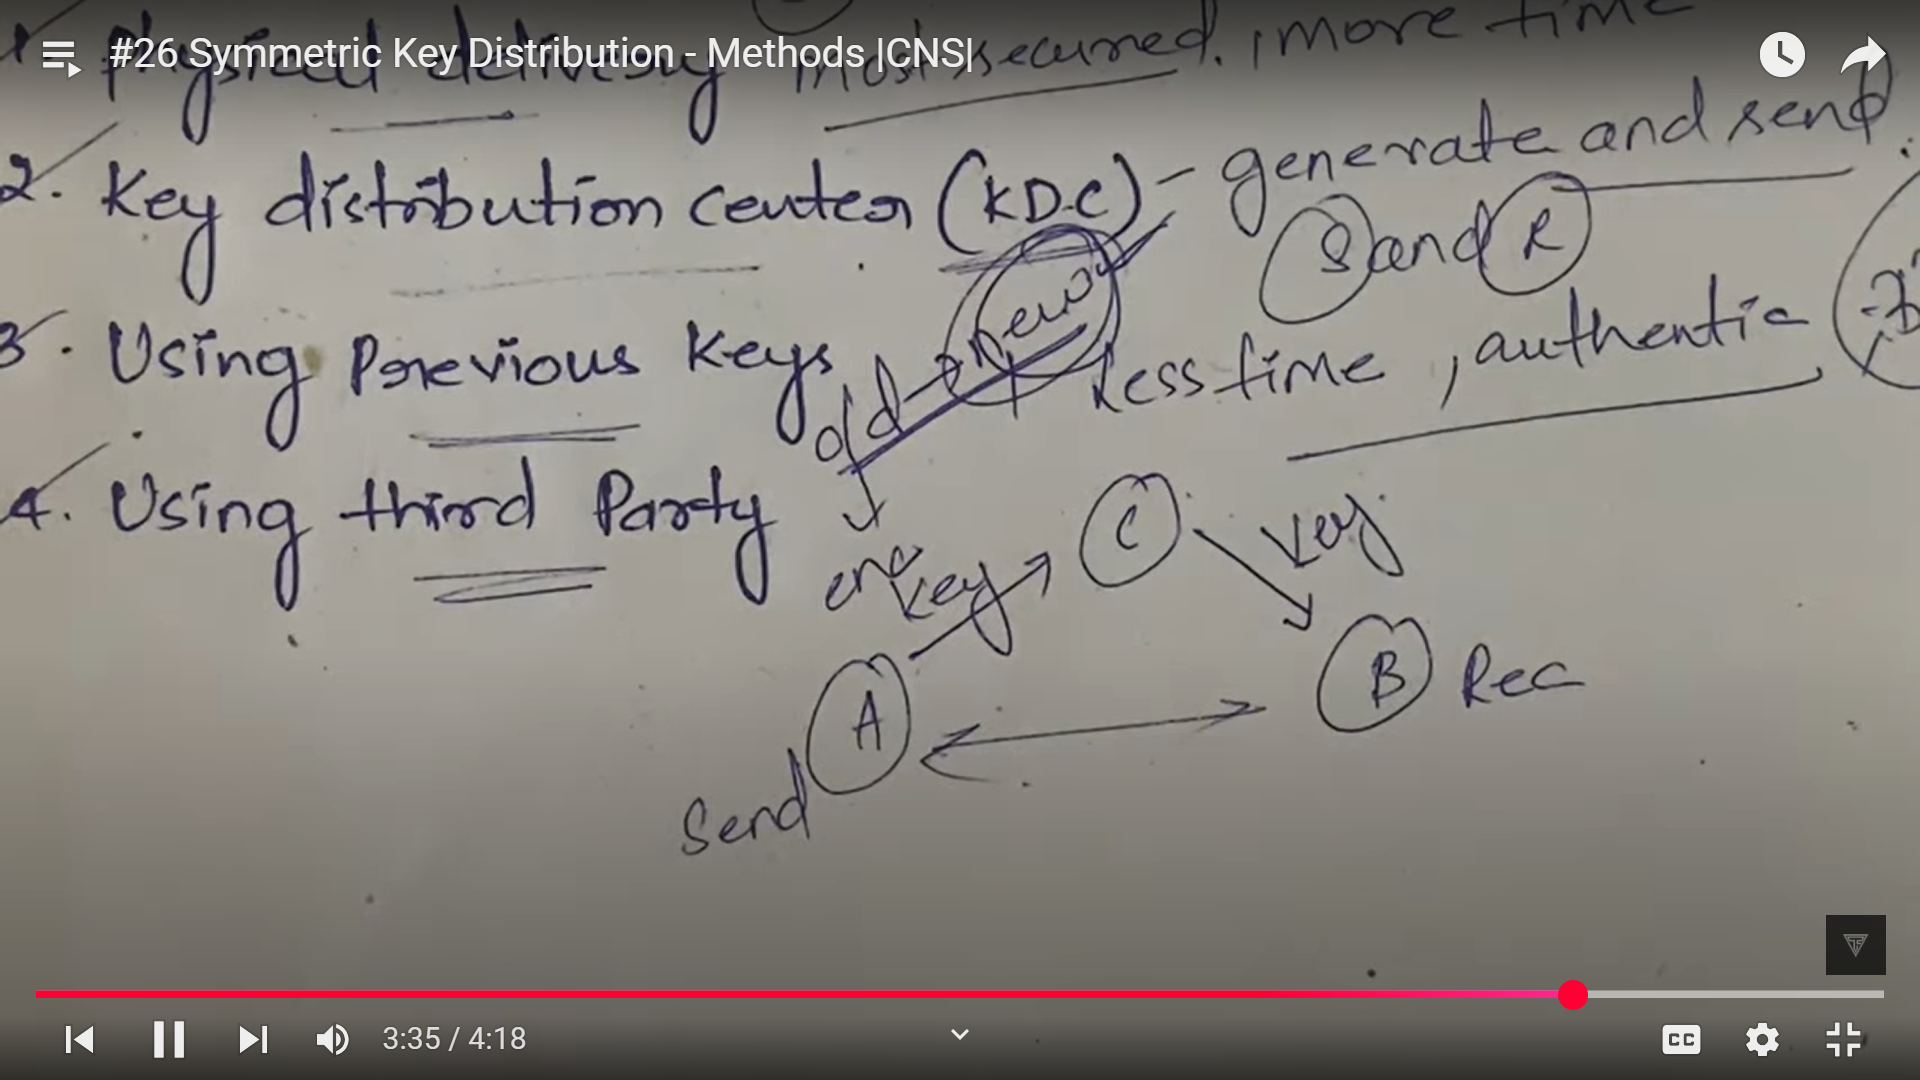 #26 Symmetric Key Distribution - Methods |CNS|
1. Physical delivery most secured., more time
2. Key distribution center (KDC) - generate and send.
S and R
3. Using Previous Keys old → new less time, authentic
enc
4. Using third Party
key C key
A B Rec
Send
3:35 / 4:18
CC